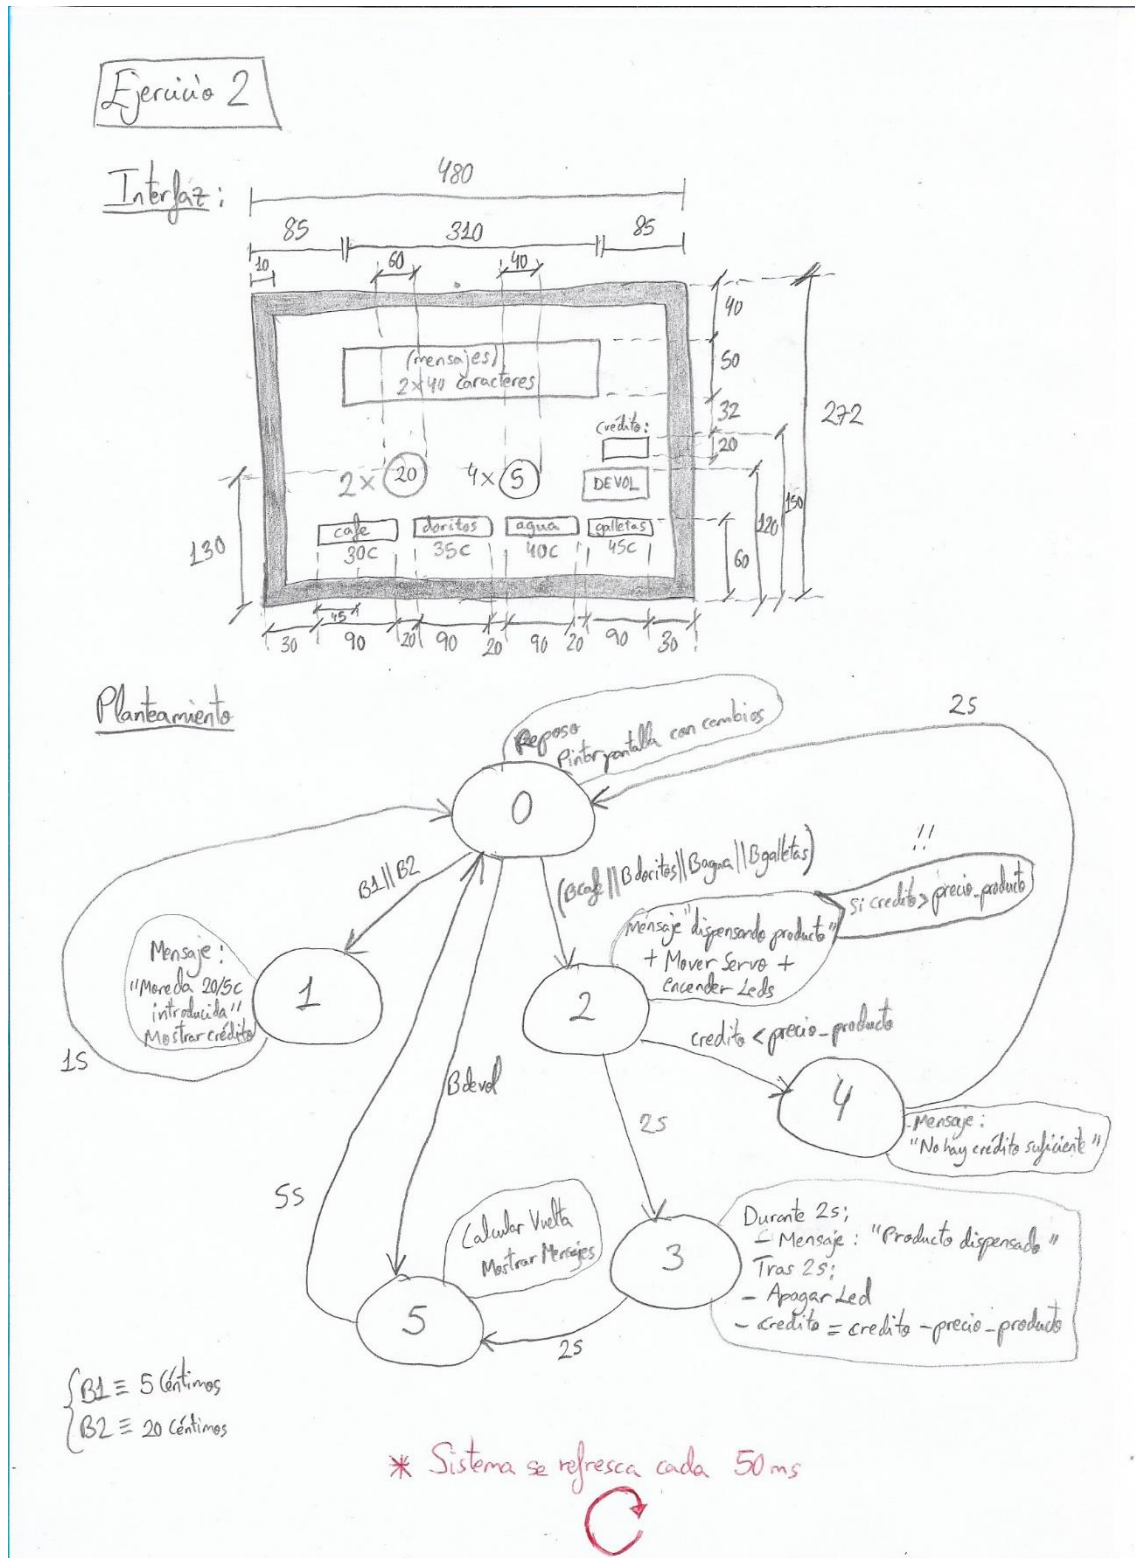 Ejercicio 2
Interfaz:
480
85 310 85
10 60 40
40
(mensajes)
2x40 caracteres
50
32
272
crédito:
20
2x 20 4x 5
DEVOL
130
150
120
60
cafe doritos agua galletas
30c 35c 40c 45c
45
30 90 20 90 20 90 20 90 30
Planteamiento
Reposo
Pintar pantalla con cambios
2s
0
B1||B2
(Bcafe||Bdoritos||Bagua||Bgalletas)
!!
si credito > precio_producto
Mensaje "dispensando producto"
+ Mover Servo +
encender Leds
Mensaje:
"Moneda 20/5c
introducida"
Mostrar crédito
1
2
credito < precio_producto
1s
Bdevol
2s
4
- Mensaje:
"No hay crédito suficiente"
5s
Calcular Vuelta
Mostrar Mensajes
3
Durante 2s;
- Mensaje: "Producto dispensado"
Tras 2s;
- Apagar Led
- credito = credito - precio_producto
5
2s
B1 ≡ 5 Céntimos
B2 ≡ 20 Céntimos
* Sistema se refresca cada 50 ms